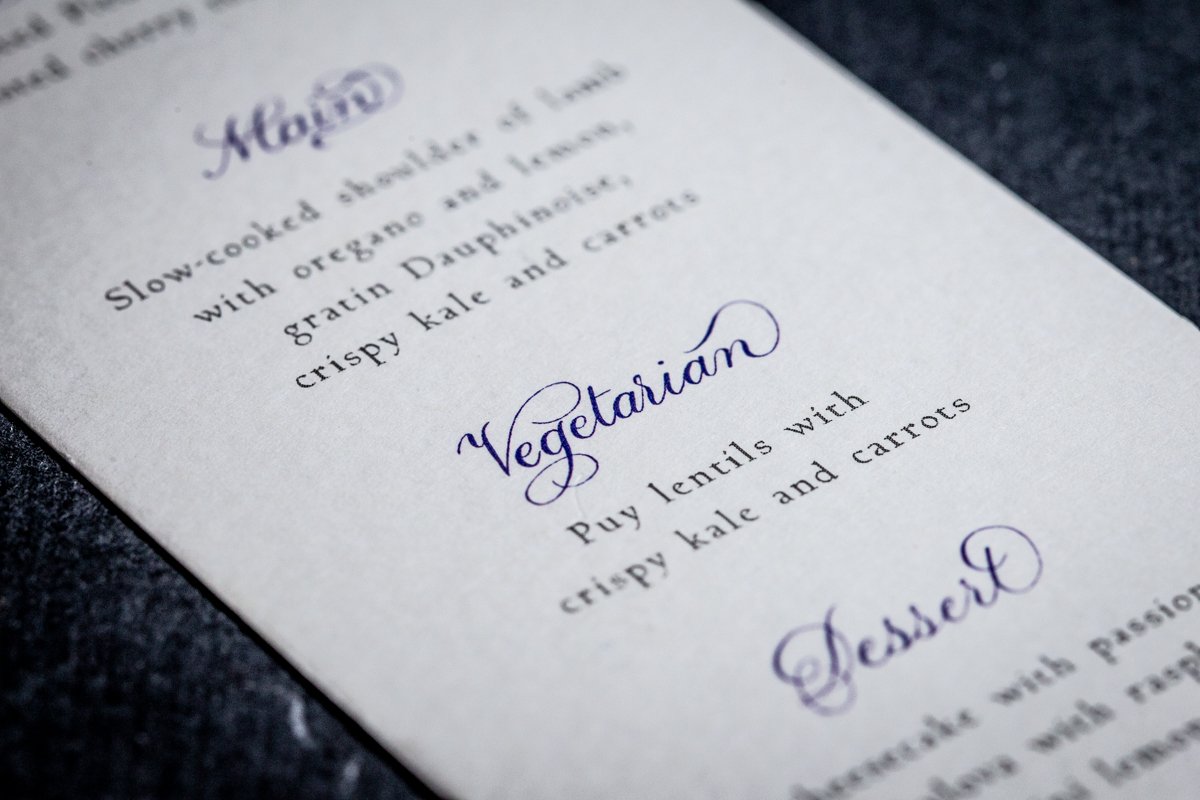 cherry
Main
Slow-cooked shoulder of lamb
with oregano and lemon,
gratin Dauphinoise,
crispy kale and carrots
Vegetarian
Puy lentils with
crispy kale and carrots
Dessert
with passion
with
lemon